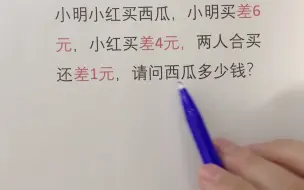 小明小红买西瓜，小明买差6
元，小红买差4元，两人合买
还差1元，请问西瓜多少钱？